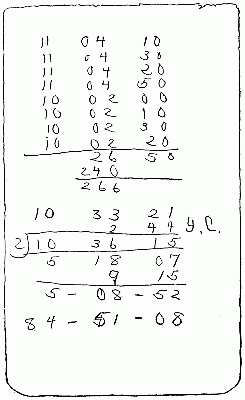 11 04 10
11 04 30
11 04 20
11 04 50
10 02 00
10 02 10
10 02 30
10 02 20
26 50
240
266
10 33 21
2 44 y.C.
2)10 36 15
5 18 07
9 15
5 - 08 - 52
84 - 51 - 08